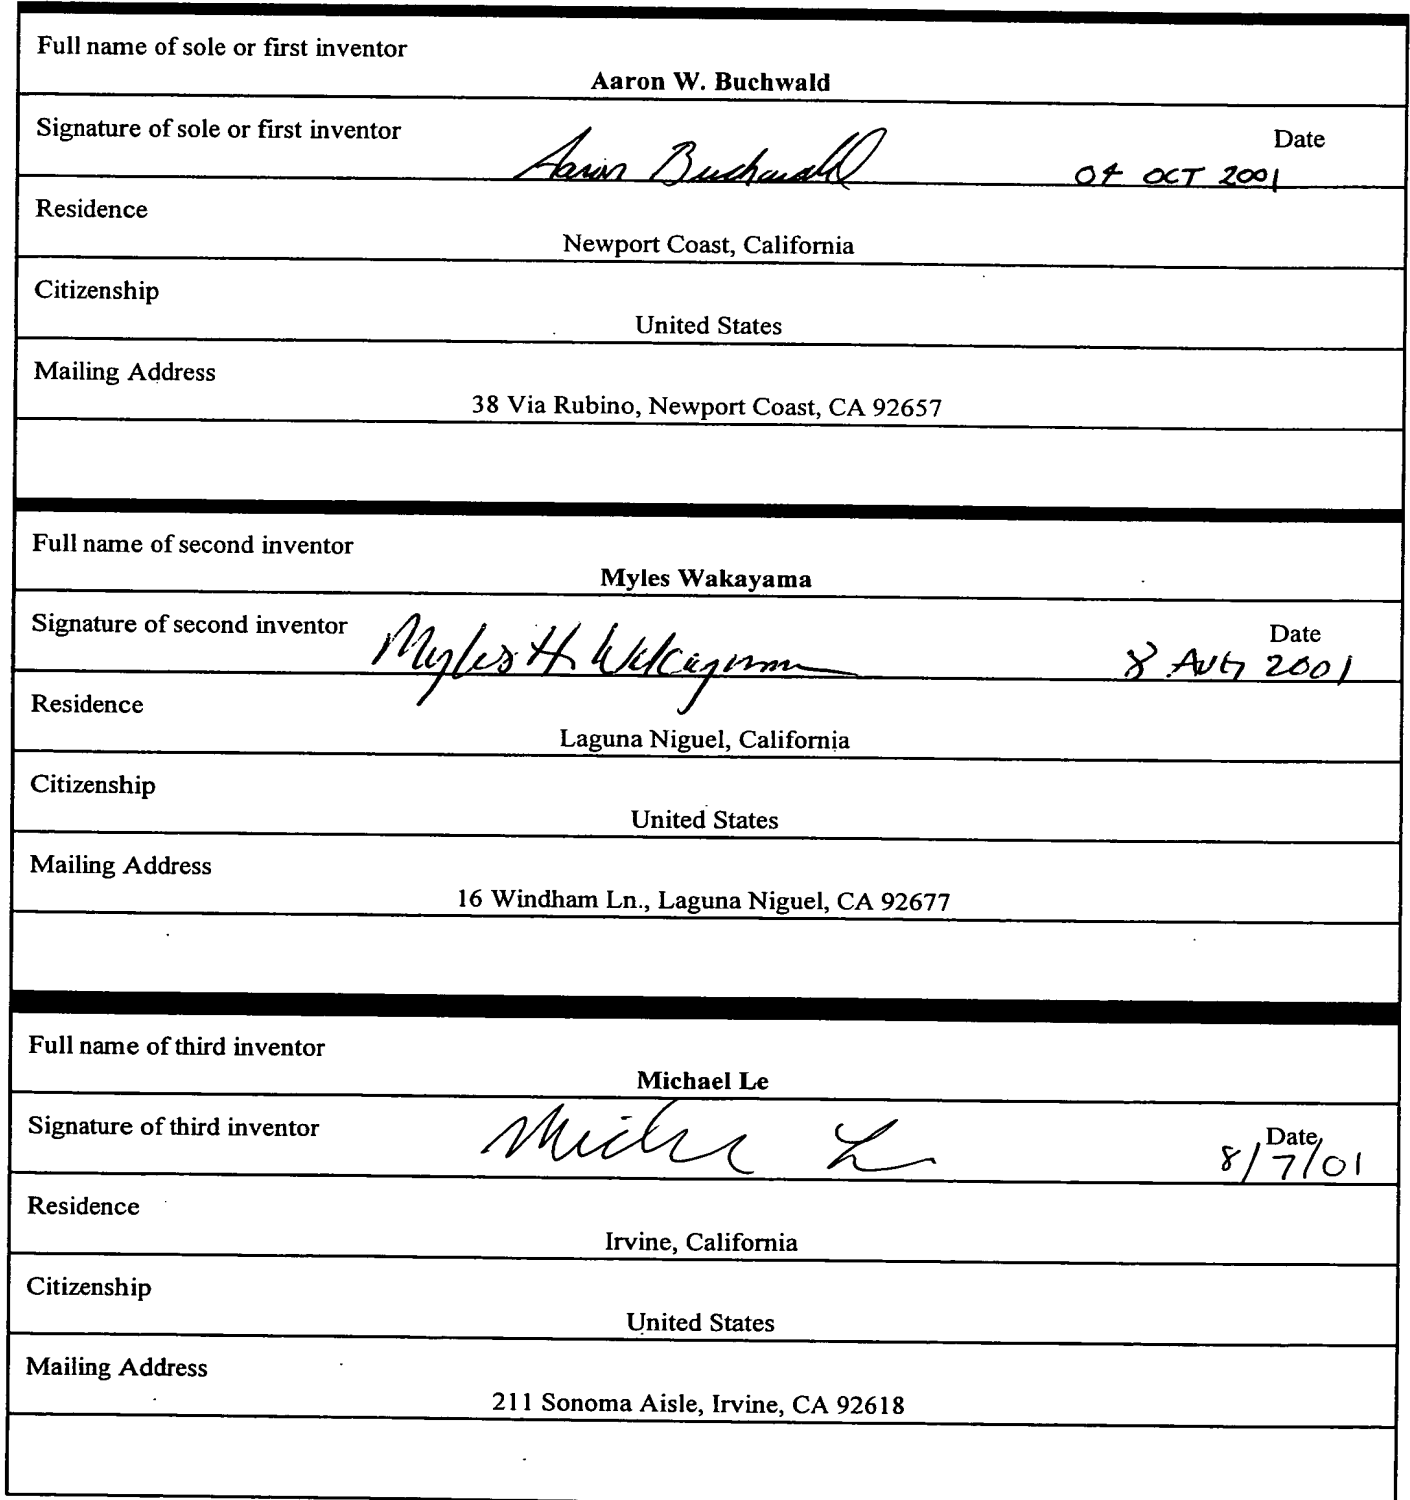 Full name of sole or first inventor
Aaron W. Buchwald
Signature of sole or first inventor Aaron Buchwald Date
04 OCT 2001
Residence
Newport Coast, California
Citizenship
United States
Mailing Address
38 Via Rubino, Newport Coast, CA 92657
Full name of second inventor
Myles Wakayama
Signature of second inventor Myles H. Wakayama Date
8 AUG 2001
Residence
Laguna Niguel, California
Citizenship
United States
Mailing Address
16 Windham Ln., Laguna Niguel, CA 92677
Full name of third inventor
Michael Le
Signature of third inventor Michael Le Date
8/7/01
Residence
Irvine, California
Citizenship
United States
Mailing Address
211 Sonoma Aisle, Irvine, CA 92618